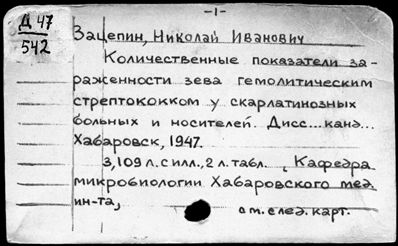 -1-
Д 47
542
Зацепин, Николай Иванович
Количественные показатели за-
раженности зева гемолитическим
стрептококком у скарлатинозных
больных и носителей. Дисс... канд...
Хабаровск, 1947.
3,109 л. с илл., 2 л. табл. , Кафедра
микробиологии Хабаровского мед.
ин-та,
см. след. карт.